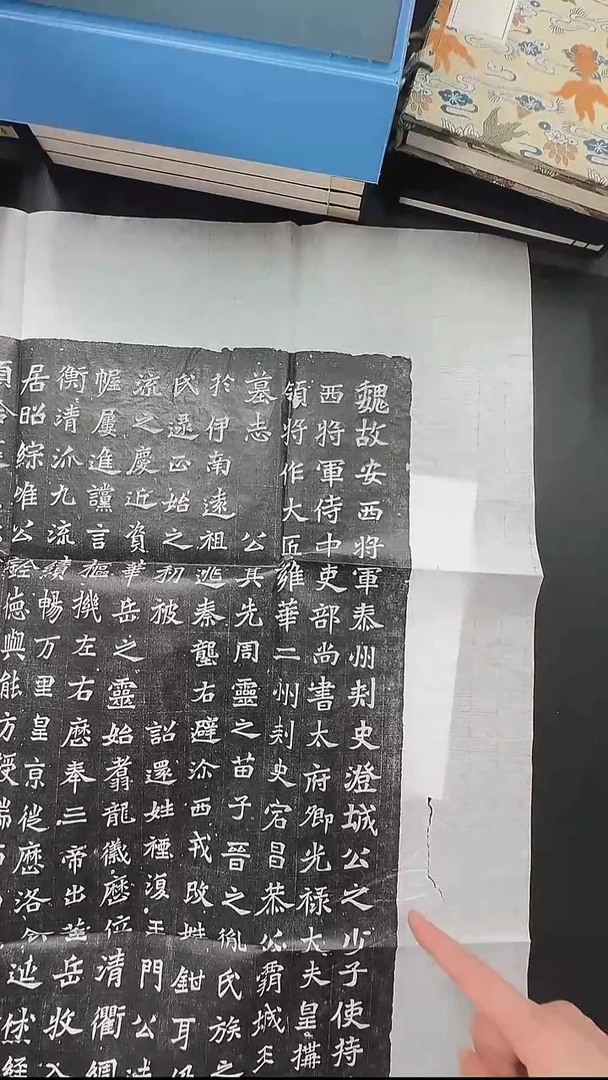 魏故安西將軍秦州刾史澄城公之少子使持
西將軍侍中吏部尚書太府卿光祿大夫皇搆
領將作大匠雍華二州刾史宕昌恭公霸城王
墓志 公其先周靈之苗子晉之胤氏族之
於伊南遠祖逃秦壟右避沵西戎改姓鉗耳
氏逯正始之初被 詔還姓種復王門公
流之慶近資華岳之靈始翥龍徽歷位清衢網
幄屢進讜言樞機左右歷奉三帝出莅岳牧入
衡清泒九流續暢万里皇京徙歷洛食
居昭綜唯公銓德與能方授端右